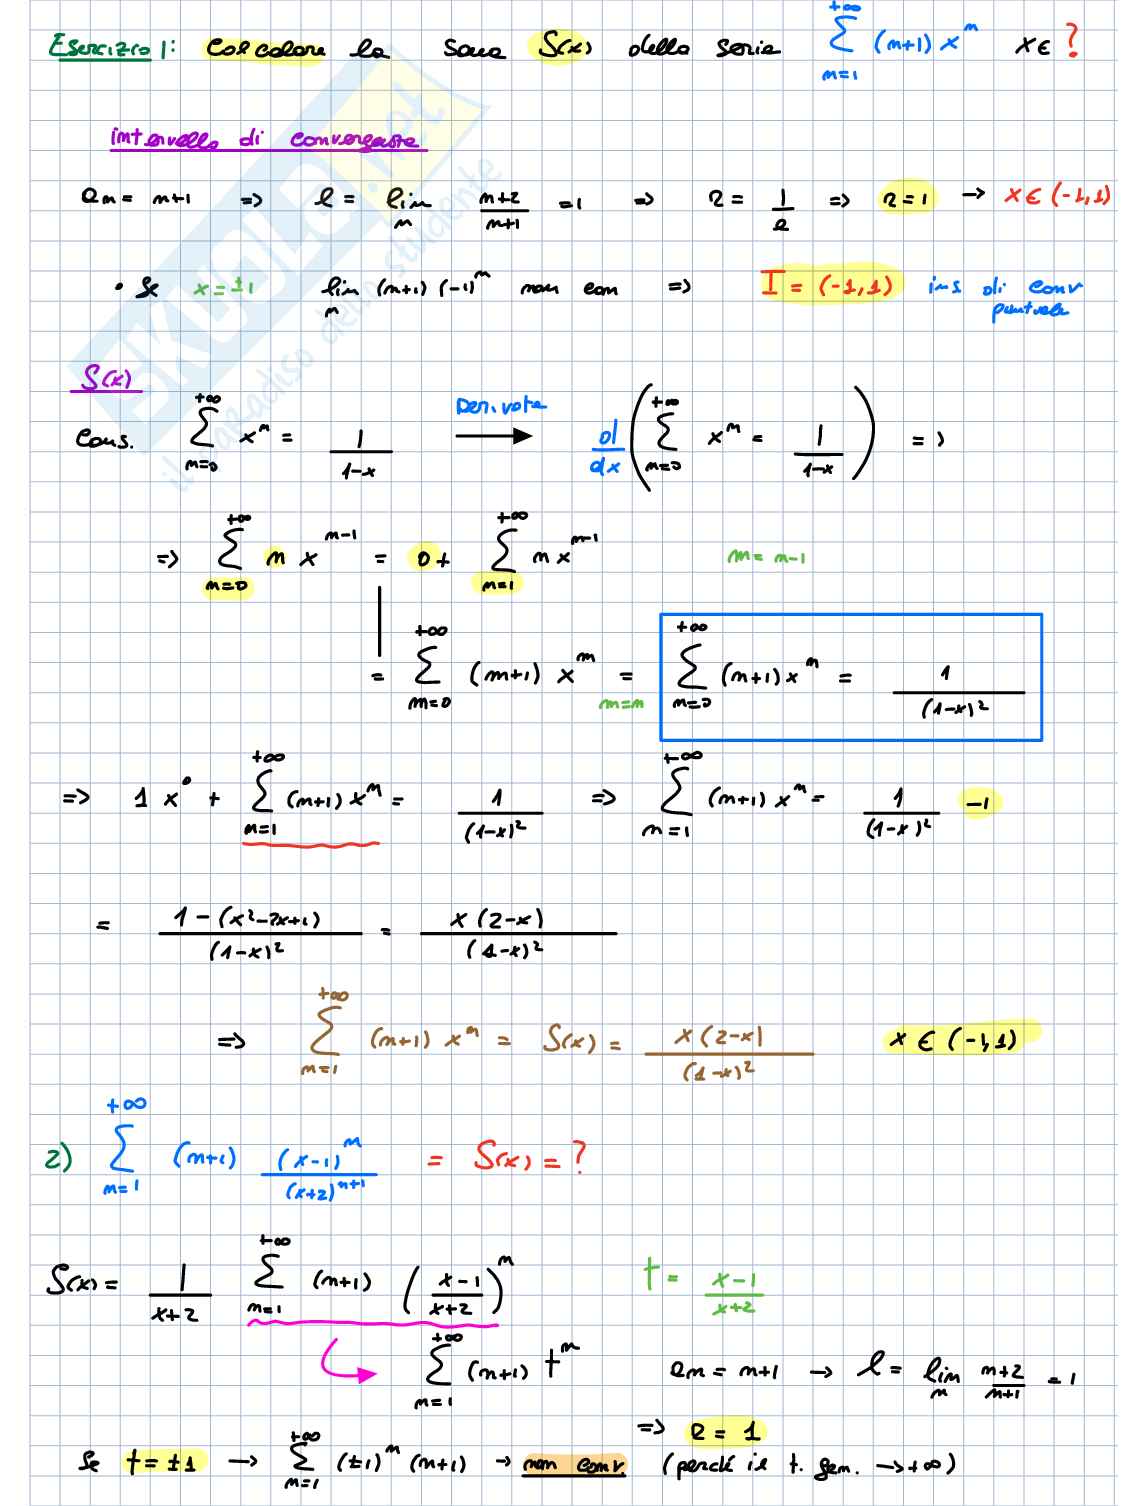 Esercizio 1: Calcolare la somma S(x) della serie $\sum_{n=1}^{+\infty} (n+1) x^n$ x ∈ ?
intervallo di convergenza
$a_n = n+1 \Rightarrow l = \lim_n \frac{n+2}{n+1} = 1 \Rightarrow r = \frac{1}{l} \Rightarrow r = 1 \rightarrow x \in (-1,1)$
• Se $x = \pm 1$ $\lim_n (n+1)(-1)^n$ non con $\Rightarrow I = (-1,1)$ ins di conv
puntuale
S(x)
Cons. $\sum_{n=0}^{+\infty} x^n = \frac{1}{1-x}$ Derivata $\longrightarrow \frac{d}{dx}\left(\sum_{n=0}^{+\infty} x^n = \frac{1}{1-x}\right) \Rightarrow$
$\Rightarrow \sum_{n=0}^{+\infty} n x^{n-1} = 0 + \sum_{n=1}^{+\infty} n x^{n-1}$ m = n-1
$= \sum_{m=0}^{+\infty} (m+1) x^m \underset{m=n}{=} \sum_{n=0}^{+\infty} (n+1) x^n = \frac{1}{(1-x)^2}$
$\Rightarrow 1 x^0 + \sum_{n=1}^{+\infty} (n+1) x^n = \frac{1}{(1-x)^2} \Rightarrow \sum_{n=1}^{+\infty} (n+1) x^n = \frac{1}{(1-x)^2} - 1$
$= \frac{1-(x^2-2x+1)}{(1-x)^2} = \frac{x(2-x)}{(1-x)^2}$
$\Rightarrow \sum_{n=1}^{+\infty} (n+1) x^n = S(x) = \frac{x(2-x)}{(1-x)^2}$ $x \in (-1,1)$
2) $\sum_{n=1}^{+\infty} (n+1) \frac{(x-1)^n}{(x+2)^{n+1}} = S(x) = ?$
$S(x) = \frac{1}{x+2} \sum_{n=1}^{+\infty} (n+1) \left(\frac{x-1}{x+2}\right)^n$ $t = \frac{x-1}{x+2}$
$\sum_{n=1}^{+\infty} (n+1) t^n$ $a_n = n+1 \rightarrow l = \lim_n \frac{n+2}{n+1} = 1$
$\Rightarrow R = 1$
Se $t = \pm 1 \rightarrow \sum_{n=1}^{+\infty} (\pm 1)^n (n+1) \rightarrow$ non conv. (perché il t. gen. $\rightarrow +\infty$)
SKUOLA.net
il paradiso dello studente